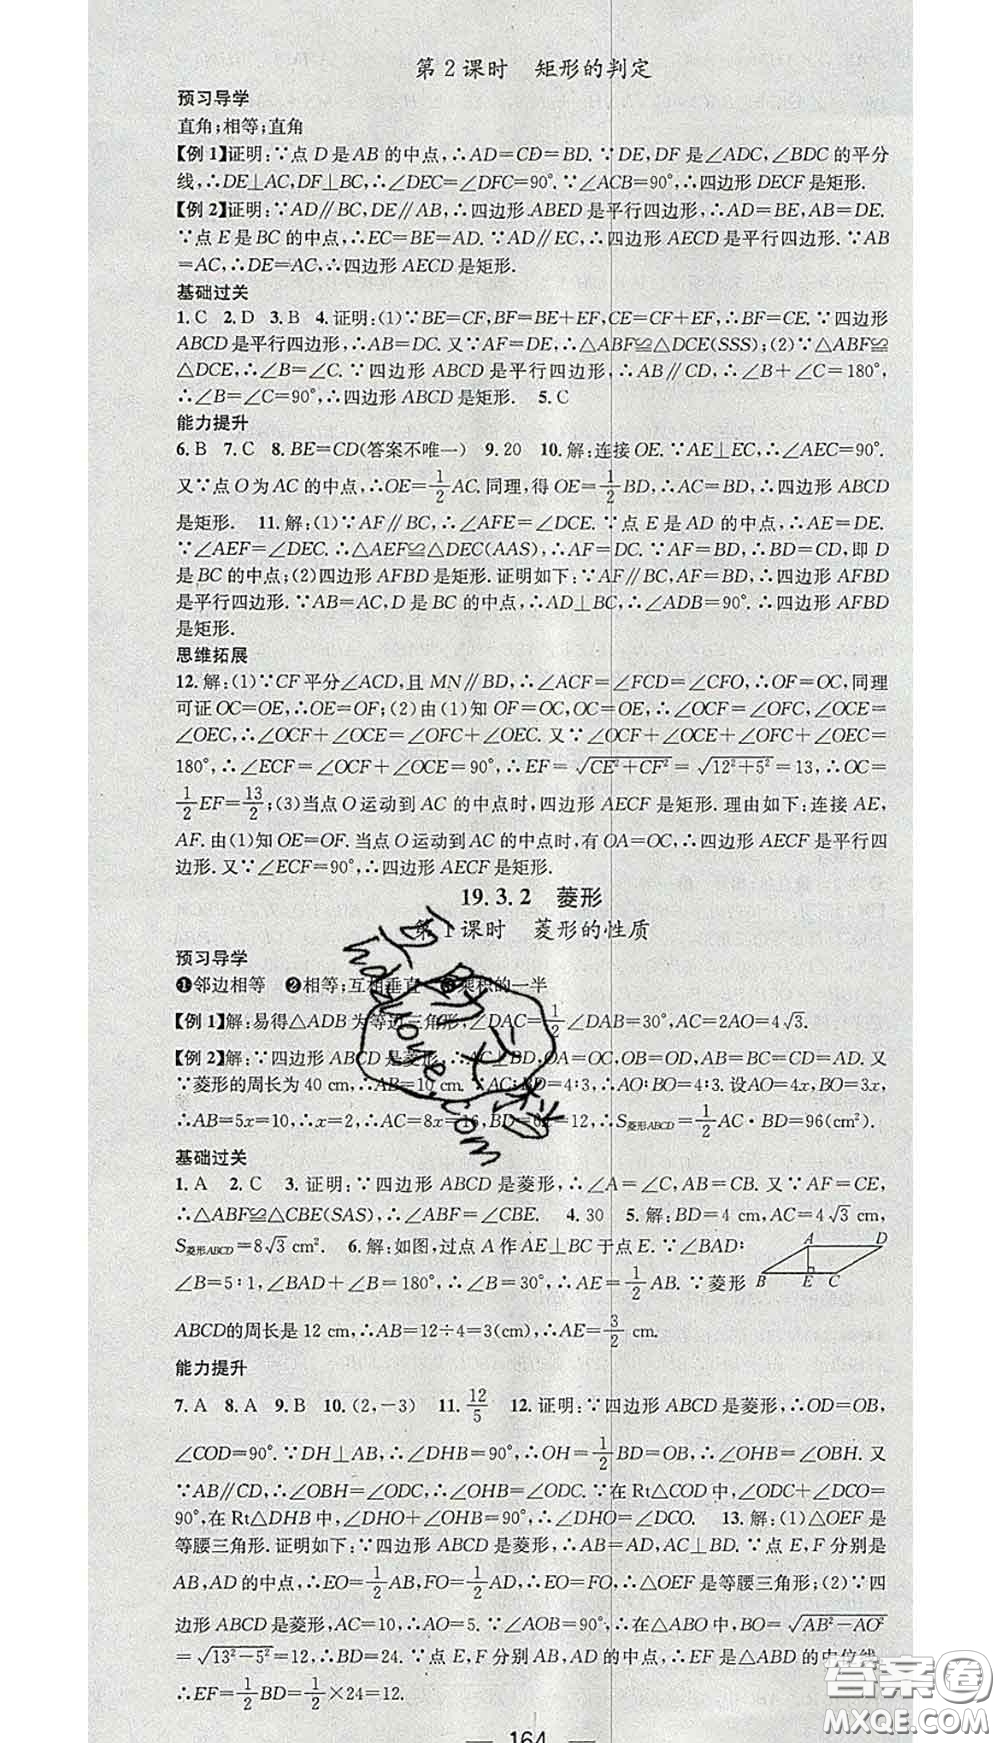 第2课时　矩形的判定
预习导学
直角;相等;直角
【例1】证明:∵点D是AB的中点,∴AD=CD=BD.∵DE,DF是∠ADC,∠BDC的平分
线,∴DE⊥AC,DF⊥BC,∴∠DEC=∠DFC=90°.∵∠ACB=90°,∴四边形DECF是矩形.
【例2】证明:∵AD∥BC,DE∥AB,∴四边形ABED是平行四边形,∴AD=BE,AB=DE.
∵点E是BC的中点,∴EC=BE=AD.∵AD∥EC,∴四边形AECD是平行四边形.∵AB
=AC,∴DE=AC,∴四边形AECD是矩形.
基础过关
1.C　2.D　3.B　4.证明:(1)∵BE=CF,BF=BE+EF,CE=CF+EF,∴BF=CE.∵四边形
ABCD是平行四边形,∴AB=DC.又∵AF=DE,∴△ABF≌△DCE(SSS);(2)∵△ABF≌
△DCE,∴∠B=∠C.∵四边形ABCD是平行四边形,∴AB∥CD,∴∠B+∠C=180°,
∴∠B=∠C=90°,∴四边形ABCD是矩形.　5.C
能力提升
6.B　7.C　8.BE=CD(答案不唯一)　9.20　10.解:连接OE.∵AE⊥EC,∴∠AEC=90°.
又∵点O为AC的中点,∴OE=1/2AC.同理,得OE=1/2BD,∴AC=BD,∴四边形ABCD
是矩形.　11.解:(1)∵AF∥BC,∴∠AFE=∠DCE.∵点E是AD的中点,∴AE=DE.
∵∠AEF=∠DEC,∴△AEF≌△DEC(AAS),∴AF=DC.∵AF=BD,∴BD=CD,即D
是BC的中点;(2)四边形AFBD是矩形.证明如下:∵AF∥BD,AF=BD,∴四边形AFBD
是平行四边形.∵AB=AC,D是BC的中点,∴AD⊥BC,∴∠ADB=90°.∴四边形AFBD
是矩形.
思维拓展
12.解:(1)∵CF平分∠ACD,且MN∥BD,∴∠ACF=∠FCD=∠CFO,∴OF=OC,同理
可证OC=OE,∴OE=OF;(2)由(1)知OF=OC,OC=OE,∴∠OCF=∠OFC,∠OCE=
∠OEC,∴∠OCF+∠OCE=∠OFC+∠OEC.又∵∠OCF+∠OCE+∠OFC+∠OEC=
180°,∴∠ECF=∠OCF+∠OCE=90°,∴EF=√(CE²+CF²)=√(12²+5²)=13,∴OC=
1/2EF=13/2;(3)当点O运动到AC的中点时,四边形AECF是矩形.理由如下:连接AE,
AF.由(1)知OE=OF.当点O运动到AC的中点时,有OA=OC,∴四边形AECF是平行四
边形.又∵∠ECF=90°,∴四边形AECF是矩形.
19.3.2　菱形
第1课时　菱形的性质
预习导学
❶邻边相等　❷相等;互相垂直　❸乘积的一半
【例1】解:易得△ADB为等边三角形,∠DAC=1/2∠DAB=30°,AC=2AO=4√3.
【例2】解:∵四边形ABCD是菱形,∴AC⊥BD,OA=OC,OB=OD,AB=BC=CD=DA.又
∵菱形的周长为40 cm,∴AB=10 cm.∵AC:BD=4:3,∴AO:BO=4:3.设AO=4x,BO=3x,
∴AB=5x=10,∴x=2,∴AC=8x=16,BD=6x=12,∴S菱形ABCD=1/2AC·BD=96(cm²).
基础过关
1.A　2.C　3.证明:∵四边形ABCD是菱形,∴∠A=∠C,AB=CB.又∵AF=CE,
∴△ABF≌△CBE(SAS),∴∠ABF=∠CBE.　4.30　5.解:BD=4 cm,AC=4√3 cm,
S菱形ABCD=8√3 cm².　6.解:如图,过点A作AE⊥BC于点E.∵∠BAD:
∠B=5:1,∠BAD+∠B=180°,∴∠B=30°,∴AE=1/2AB.∵菱形
A D B E C
ABCD的周长是12 cm,∴AB=12÷4=3(cm),∴AE=3/2 cm.
能力提升
7.A　8.A　9.B　10.(2,-3)　11.12/5　12.证明:∵四边形ABCD是菱形,∴OD=OB,
∠COD=90°.∵DH⊥AB,∴∠DHB=90°,∴OH=1/2BD=OB,∴∠OHB=∠OBH.又
∵AB∥CD,∴∠OBH=∠ODC,∴∠OHB=∠ODC.∵在Rt△COD中,∠ODC+∠DCO=
90°,在Rt△DHB中,∠DHO+∠OHB=90°,∴∠DHO=∠DCO.　13.解:(1)△OEF是
等腰三角形.证明如下:∵四边形ABCD是菱形,∴AB=AD,AC⊥BD.∵点E,F分别是
AB,AD的中点,∴EO=1/2AB,FO=1/2AD,∴EO=FO,∴△OEF是等腰三角形;(2)∵四
边形ABCD是菱形,AC=10,∴AO=5.∵∠AOB=90°,∴在△ABO中,BO=√(AB²-AO²)
=√(13²-5²)=12,∴BD=24.∵点E,F分别AB,AD的中点,∴EF是△ABD的中位线,
∴EF=1/2BD=1/2×24=12.
164
答案卷
MXQE.COM